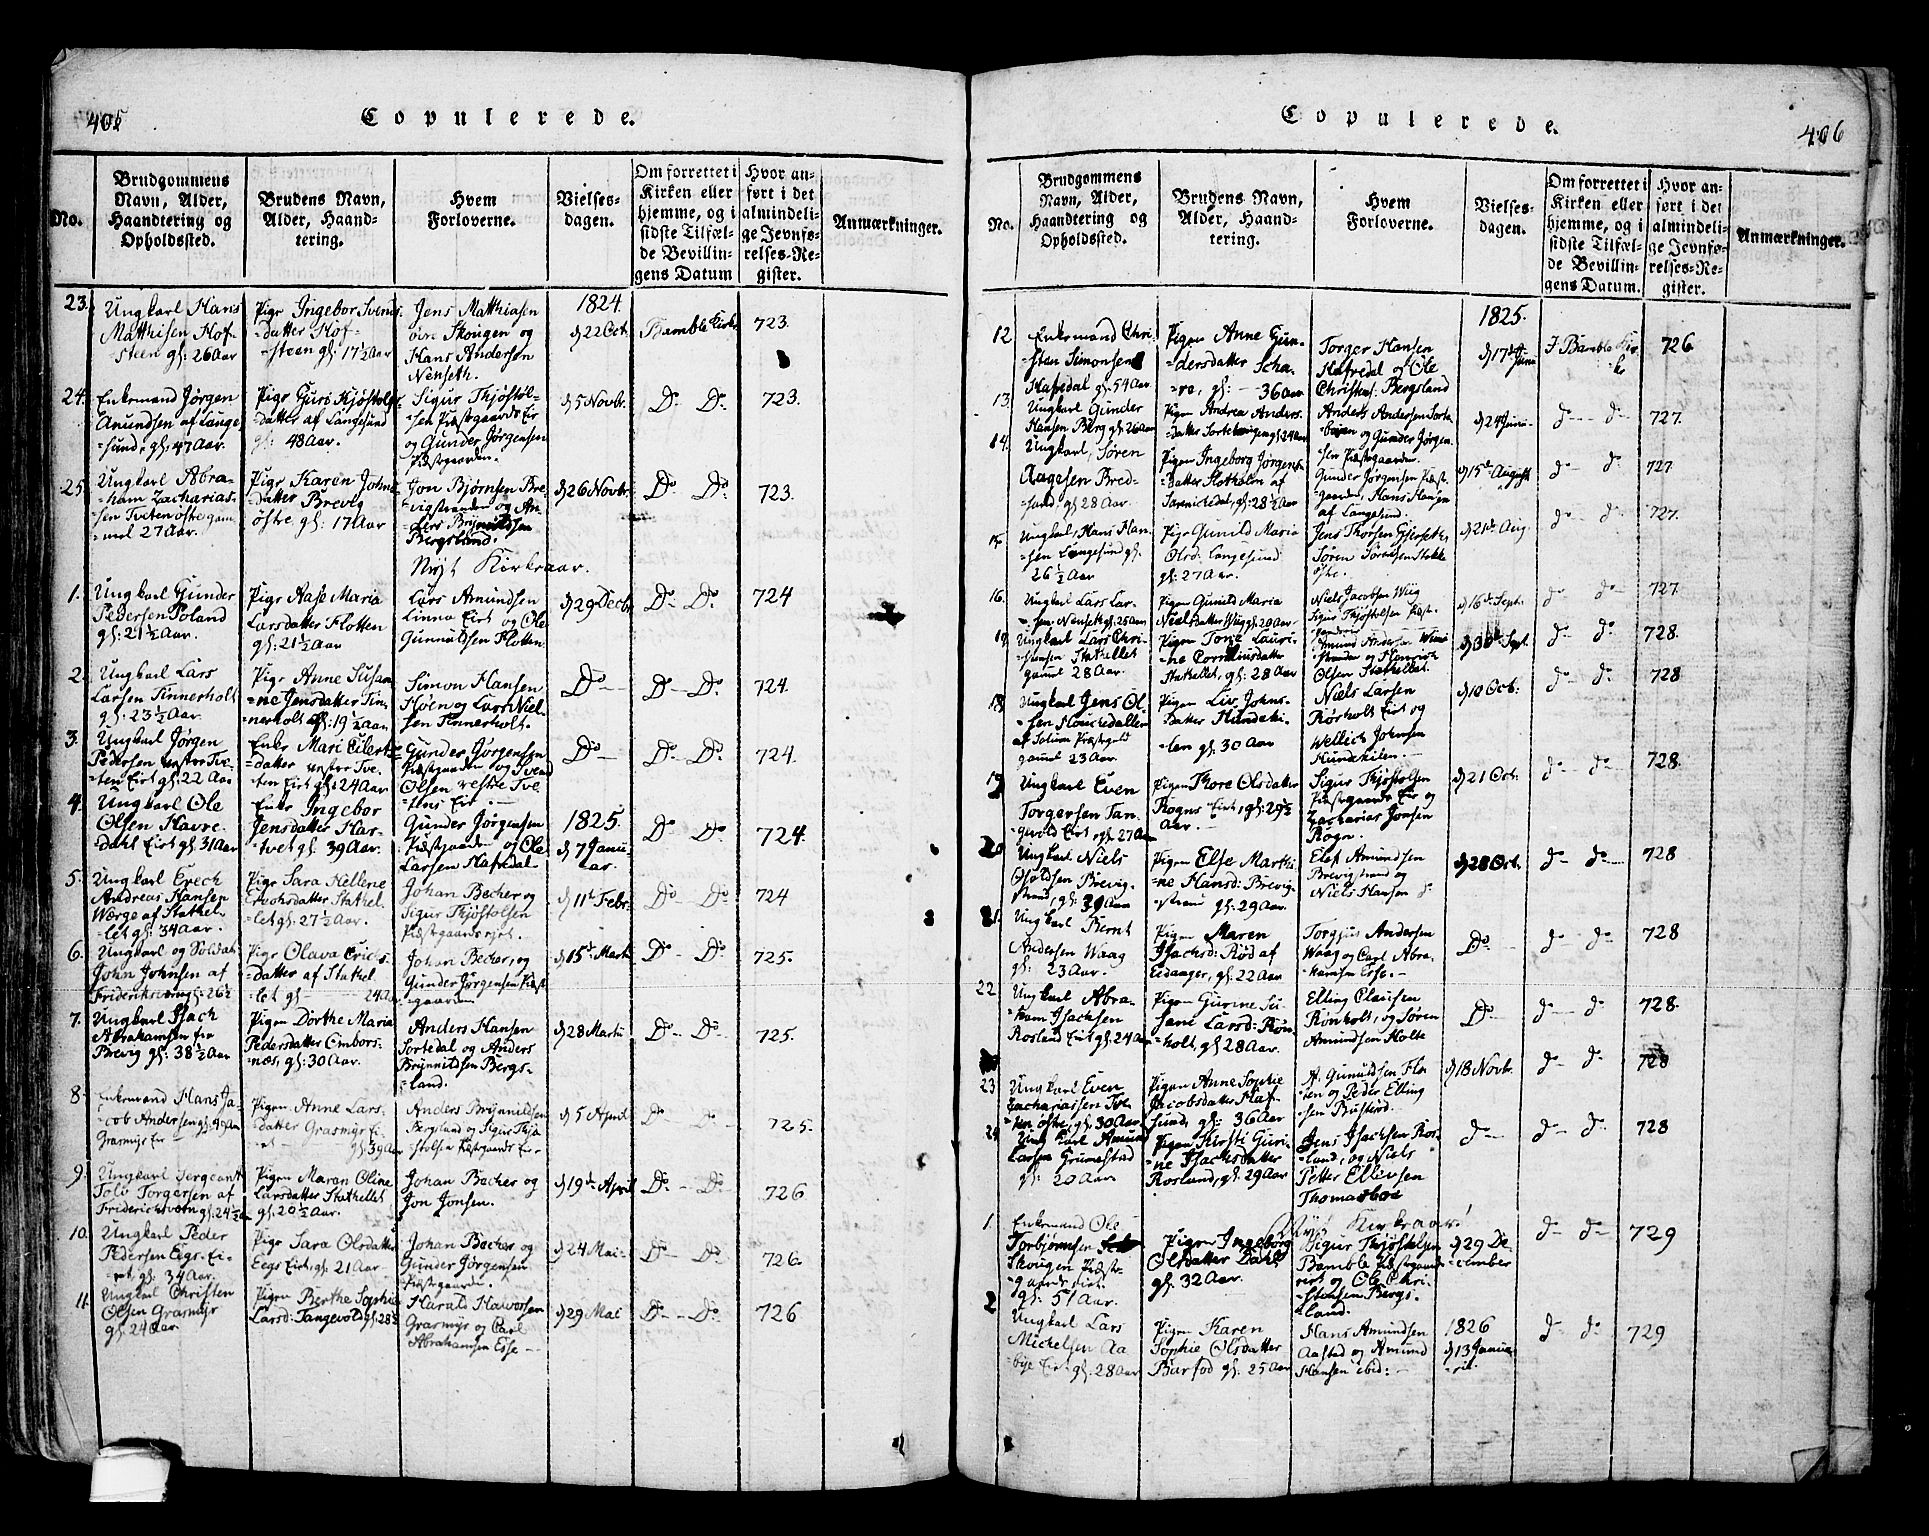 405
Copulerede.
No.
Brudgommens
Navn, Alder,
Haandtering og
Opholdssted.
Brudens Navn,
Alder, Haand-
tering.
Hvem
Forloverne.
Vielses-
dagen.
Om forrettet i
Kirken eller
hjemme, og i
sidste Tilfæl-
de Bevillin-
gens Datum
Hvor an-
ført i det
almindeli-
ge Jevnfø-
relses-Re-
gister.
Anmærkninger.
23.
Ungkarl Hans
Matthisen Hof-
steen gl: 26 Aar
Pige Ingebor Svends
datter Hof-
steen gl: 17½ Aar
Jens Matthiasen
øvre Skougen og
Hans Andersøn
Nenseth.
1824.
d 22 Oct.
Bamble Kirke
723.
24.
Enkemand Jørgen
Anundsen af Lange
sund, gl: 47 Aar.
Pige Guri Kjøstolps
datter af Langesund
gl: 48 Aar.
Sigur Thjøstøl-
sen Præstegaards Eie
og Gunder Jørgensen
Præstegaarden.
d 5 Novbr.
Do Do
723.
25.
Ungkarl Abra-
ham Zacharias-
sen Tveten østre gam-
mel 27 Aar.
Pige Karen Johns
datter Brevig
østre, gl: 17 Aar
Jon Bjørnsen Bre
vigstranden og An-
ders Brynnildsen
Bergsland.
d 26 Novbr.
Do Do
723.
Nyt Kirkeaar.
1.
Ungkarl Gunder
Pedersen Poland
gl: 21½ Aar.
Pige Aase Maria
Larsdatter Flotten
gl: 21½ Aar
Lars Amundsen
Linna Eiet og Ole
Gunnuldsen Flotten.
d 29 Decbr.
Do Do
724
2.
Ungkarl Lars
Larsen Finnerholt
gl: 23½ Aar.
Pige Anne Susan
ne Jensdatter Fin
nerholt gl: 19½ Aar
Simon Hansen
Høen og Lars Niel-
sen Finnerholt.
Do
D - Do
724.
3.
Ungkarl Jørgen
Pedersen vestre Tve-
ten Eiet gl: 22 Aar
Enke Mari Eilert
datter vestre Tve-
ten Eiet gl: 24 Aar
Gunder Jørgensen
Præstegaarden og Svend
Olsen vestre Tve
tens Eie
Do
Do - Do
724.
4.
Ungkarl Ole
Olsen Havre
dahl Eiet gl 31 Aar
Enke Ingebor
Jensdatter Har-
tvet gl: 39 Aar.
Gunder Jørgensen
Præstegaarden og Ole
Larsen Hafredal
1825.
d 7 Janu-
ar.
Do Do
724.
5.
Ungkarl Erech
Andreas Hansen
Werge af Stathel-
let gl: 34 Aar.
Pige Sara Hellene
Erechsdatter Stathel
let gl: 27½ Aar.
Johan Becher og
Sigur Thjøstolsen
Præstegaards eiet.
d 11t Febr.
Do Do
724
6.
Ungkarl og Soldat
John Johnsen af
Frideriksværn gl: 26½
Pige Olava Erichs-
datter af Stathel
let gl 24 Aar
Johan Becher, og
Gunder Jørgensen Præst
gaarden
d 15t Marti
Do - Do
725.
7.
Ungkarl Isach
Abrahamsen fra
Brevig gl: 38½ Aar
Pigen Dorthe Maria
Pedersdatter Embors-
næs, gl: 30 Aar.
Anders Hansen
Sortedal og Anders
Brynnildsen Bergs-
land.
d 28 Martii
Do - Do
725.
8.
Enkemand Hans Ja-
cob Andersen gl: 40 Aar
Grasmyr Eie
Pigen Anne Lars-
datter Grasmyr Ei-
et gl: 39 Aar
Anders Brynnildsen
Bergsland og Sigur Thjø-
stolsen Præstegaards Eie-
d 5 April
Do - Do
725.
9.
Ungkarl Sergeant
Tolv Torgersen af
Friderichsværn gl. 24½ Aar
Pigen Maran Oline
Larsdatter Stathellet
gl: 20½ Aar.
Johan Becher og
Jon Jonsen.
d 19t April
Do - Do
726
10.
Ungkarl Peder
Pedersen Eegs-Ei-
et gl: 34 Aar.
Pige Sara Olsdatter
Eegs Eiet, gl: 21 Aar
Johan Becher og
Gunder Jørgensen
Præstegaarden.
d 24 Mai
Do - Do
726.
11.
Ungkarl Christen
Olsen Grasmyr
gl: 24 Aar.
Pigen Berthe Sophie
Larsd: Tangevold gl: 28½
Harald Halvorsen
Grasmyr og Carl
Abrahamsen Esse
d 29 Mai
Do - Do
726
406
Copulerede.
No.
Brudgommens
Navn, Alder,
Haandtering og
Opholdssted.
Brudens Navn,
Alder, Haand-
tering.
Hvem
Forloverne.
Vielses-
dagen.
Om forrettet i
Kirken eller
hjemme, og i
sidste Tilfæl-
de Bevillin-
gens Datum.
Hvor an-
ført i det
almindeli-
ge Jevnfø-
relses-Re-
gister.
Anmærkninger.
12
Enkemand Chri-
sten Simonsen
Hafredal gl: 54 Aar
Pigen Anne Gun-
dersdatter Scha-
ve, gl: 36 Aar
Torger Hansen
Hafredal og Ole
Christens. Bergsland
1825.
d 17d Juni
I Bamble Kir-
ke
726
13.
Ungkarl Gunder
Hansen Berg gl: 26 Aar
Pigen Andrea Anders-
datter Sortebogen gl 24 Aar
Anders Andersen Sorte
bogen og Gunder Jørgen-
sen Præstegaarden.
d 24 Juni
do do
727.
14.
Ungkarl, Søren
Aagesen Bred-
sund, gl 28 Aar
Pigen Ingeborg Jørgens-
datter Flotholm af
gl: 28½ Aar
Gunder Jørgensen Præst-
gaarden, Hans Haugen
af Langesund.
d 15d August
do do
727
15
Ungkarl, Hans Han-
sen Langesund gl:
26½ Aar
Pige Gunild Maria
Olsd: Langesund
gl: 27 Aar.
Jens Thorsen Gjerseth,
Søren Sørensen Stokke
østre.
d 21de Aug
do do
727.
16.
Ungkarl Lars Lar-
sen Nenseth gl 25 Aar
Pigen Gunild Maria
Nielsdatter Wiig gl: 20 Aar
Niels Jacobsen Wiig
Sigur Thjøstolsen Præst-
gaardseie
d 16de Sept.
do do
727.
17
Ungkarl Lars Chri-
stensen Stathellet
gaml 28 Aar
Pigen Tone Lauri-
ne Corneliusdatter
Stathellet, gl: 28 Aar
Amund Andersen
stranden og Henrich
Olsen Stathellet.
d 30d Sept.
do do
728.
18
Ungkarl Jens Ol-
sen
af Solum Præstegield
gaml 23 Aar.
Pigen Liv Johns-
datter Hundeki-
len gl: 30 Aar
Niels Larsen
Rørholt Eiet og
Wellich Johnsen
Hundkilen.
d 10 Oct:
do do
728
19
Ungkarl Even
Torgersen Tan-
gvold Eiet, gl. 27 Aar
Pigen Thore Olsdatter
Rogns Eiet, gl: 29½
Aar.
Sigur Thjøstolsen
Præstegaards Eie og
Zacharias Jonsen
Rogn.
d 21 Oct.
do do
728.
20
Ungkarl Niels
Osoldsen Brevig-
strand, gl: 39 Aar
Pigen Else Marthi
ne Hansd: Brevig-
strand gl: 29 Aar.
Elef Amundsen
Brevigstrand og
Niels Hansen
d 28 Oct.
do do
728
21.
Ungkarl Bernt
Andersen Waag
gl: 23 Aar.
Pigen Maren
Isachsd: Rød af
Eedanger, gl: 22 Aar
Torgjus Andersen
Waag og Carl Abra-
hamsen Esse.
Do
do do
728
22
Ungkarl Abra-
ham Isachsen
Rosland Eiet gl. 24 Aar
Pigen Gurine Su-
sane Larsd: Røn-
holt, gl: 28 Aar.
Elling Clausen
Rønholt, og Søren
Amundsen Holte
Do
do do
728
23
Ungkarl Even
Zachariassen Tve-
ten østre, gl: 30 Aar
Pigen Anne Sophie
Jacobsdatter Haf-
sund, gl: 36 Aar
A. Gunuldsen Flo
ten og Peder Elling-
sen Busterd.
d 18 Novbr.
do do
728
24
Ung Karl Amund
Larsen Grumestad
gl: 20 Aar.
Pigen Kirsti Guri-
ne Isachsdatter
Rosland, gl: 29 Aar
Jens Isachsen Ros-
land, og Niels
Petter Ellevsen
Thomasboe
do
do do
728
Nyt Kirkeaar!
1.
Enkemand Ole
Torbjørnsen
Skougen Præst-
gaards eiet.
gl: 51 Aar.
Pigen Ingeborg
Olsdatter Dahl
gl: 32 Aar.
Sigur Thjøstolsen
Bamble Præstegaards
eiet og Ole Chri-
stensen Bergs-
land.
d 29 De-
cember
do do
729
2
Ungkarl Lars
Michelsen Aa
bye Eiet gl: 28 Aar
Pigen Karen
Sophie Olsdatter
Barfod gl: 25 Aar
Hans Amundsen
Aastad og Amund
Hansen ibid:
1826
d 13 Janua-
rii.
do do
729